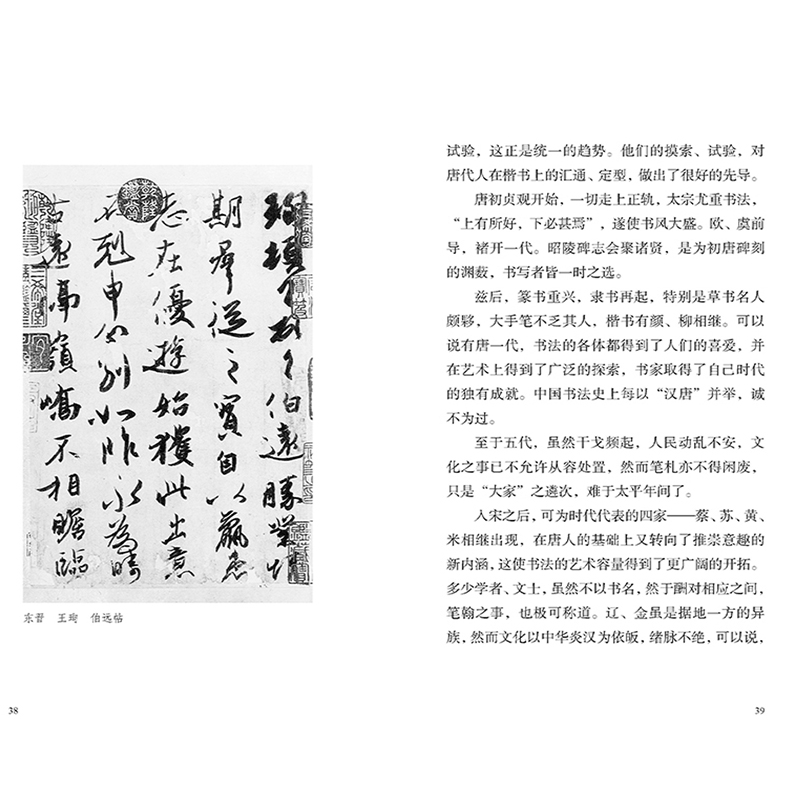 珣頓首頓首伯遠勝業情
期羣從之寶自以羸患
志在優遊始獲此出意
不剋申分別如昨永為疇
古遠隔嶺嶠不相瞻臨
东晋　王珣　伯远帖
38
试验，这正是统一的趋势。他们的摸索、试验，对
唐代人在楷书上的汇通、定型，做出了很好的先导。
唐初贞观开始，一切走上正轨，太宗尤重书法，
“上有所好，下必甚焉”，遂使书风大盛。欧、虞前
导，褚开一代。昭陵碑志会聚诸贤，是为初唐碑刻
的渊薮，书写者皆一时之选。
兹后，篆书重兴，隶书再起，特别是草书名人
颇夥，大手笔不乏其人，楷书有颜、柳相继。可以
说有唐一代，书法的各体都得到了人们的喜爱，并
在艺术上得到了广泛的探索，书家取得了自己时代
的独有成就。中国书法史上每以“汉唐”并举，诚
不为过。
至于五代，虽然干戈频起，人民动乱不安，文
化之事已不允许从容处置，然而笔札亦不得闲废，
只是“大家”之遴次，难于太平年间了。
入宋之后，可为时代代表的四家——蔡、苏、黄、
米相继出现，在唐人的基础上又转向了推崇意趣的
新内涵，这使书法的艺术容量得到了更广阔的开拓。
多少学者、文士，虽然不以书名，然于酬对相应之间，
笔翰之事，也极可称道。辽、金虽是据地一方的异
族，然而文化以中华炎汉为依皈，绪脉不绝，可以说，
39